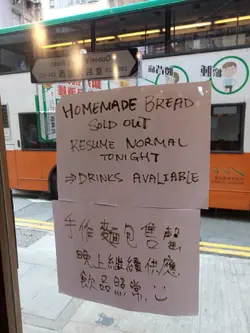 HOMEMADE BREAD
SOLD OUT
RESUME NORMAL
TONIGHT
⇒ DRINKS AVALIABLE
手作麵包售罄,
晚上繼續供應
飲品照常. :)